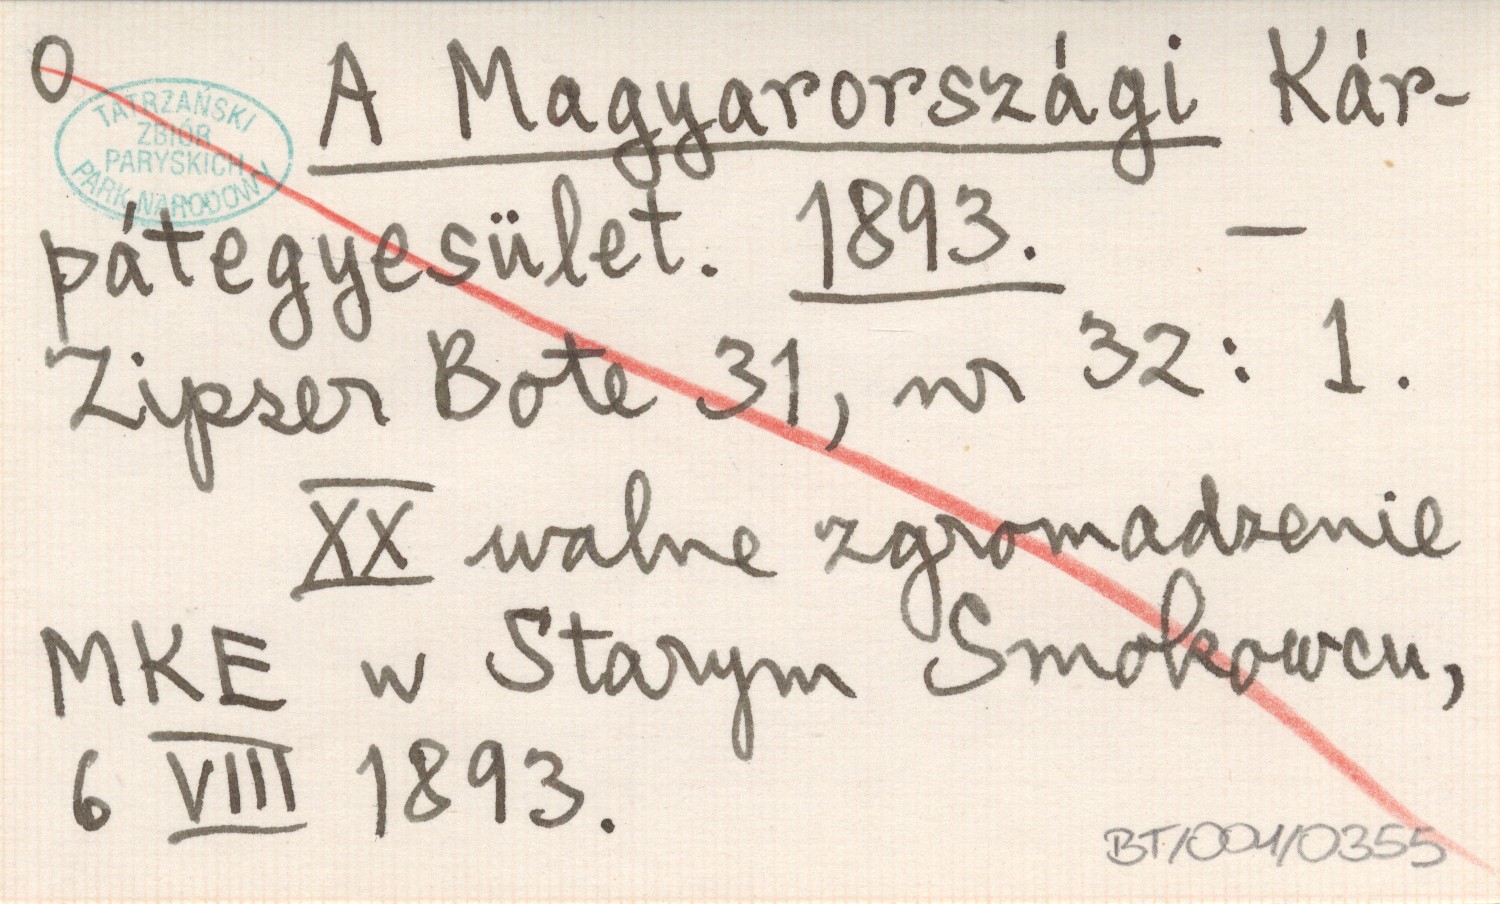 O
A Magyarországi Kár-
TATRZAŃSKI
ZBIÓR
PARYSKICH
PARK NARODOWY
pátegyesület. 1893. —
Zipser Bote 31, nr 32: 1.
XX walne zgromadzenie
MKE w Starym Smokowcu,
6 VIII 1893.
BT/001/0355